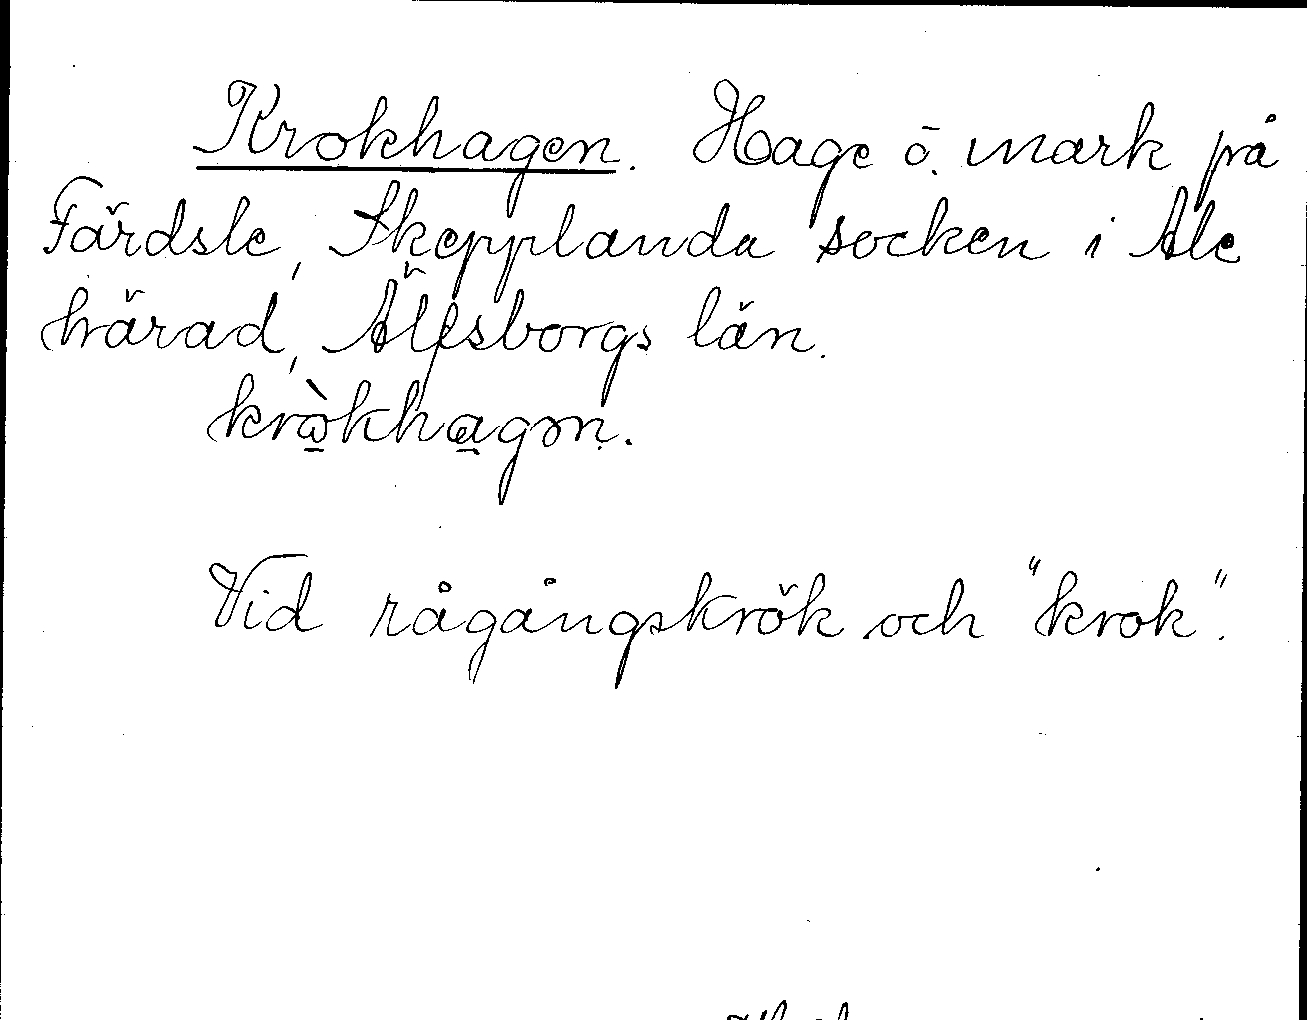 Krokhagen. Hage ö. mark på
Färdsle, Skepplanda socken i Ale
härad, Älfsborgs län.
kròkhagən.
Vid rågångskrök och "krok".